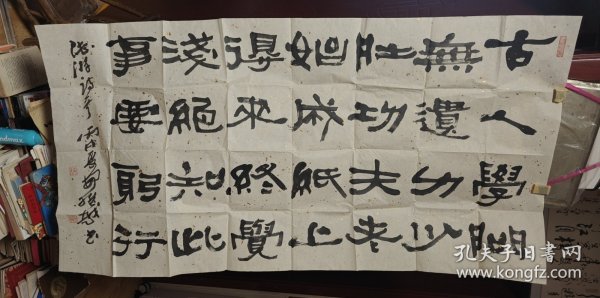 古人學問
無遺力少
壯功夫老
始成紙上
得來終覺
淺絕知此
事要躬行
陸游詩
書
孔夫子旧书网
www.kongfz.com